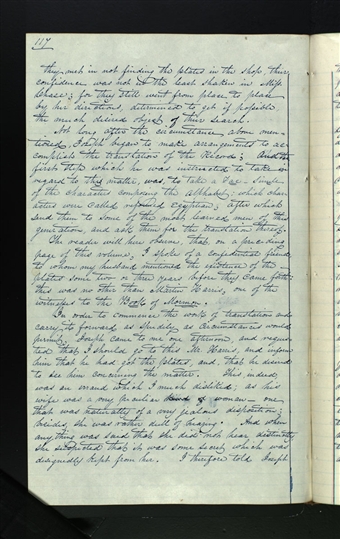 117
they met in not finding the plates in the shop, their
confidence was not in the least shaken in Miss
Chase; for they still went from place to place
by her directions, determined to get if possible
the much desired object of their search.
Not long after the circumstance above men-
tioned, Joseph began to make arrangements to ac-
complish the translation of the Record; And the
first step which he was instructed to take in
regard to this matter, was, to take a Fac-Simile
of the characters composing the alphabet, which char-
acters were called reformed egyptian; after which
send them to some of the most learned men of this
generation, and ask them for the translation thereof.
The reader will here observe, that, on a preceding
page of this volume, I spoke of a confidential friend
to whom my husband mentioned the existence of the
plates some two or three years before they came forth
this was no other than Martin Harris, one of the
witnesses to the Book of Mormon.
In order to commence the work of translation and
carry it forward as speedily as circumstances would
permit. Joseph came to me one afternoon, and reques-
ted that I should go to this Mr. Harris, and inform
him that he had got the plates, and, that he desired
to see him concerning the matter. This indeed
was an errand which I much disliked; as his
wife was a very peculiar woman— one
that was naturally of a very jealous disposition;
besides, she was rather dull of hearing. And when
any thing was said that she did not hear distinctly
she suspected that it was some secret which was
designedly kept from her. I therefore told Joseph